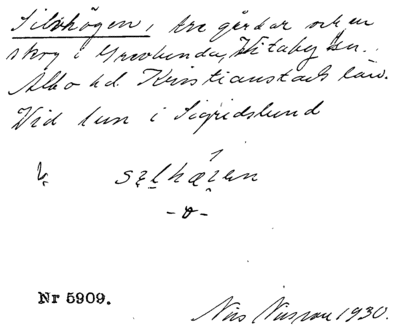 Silvhögen, tre gårdar och en
skog i Grevlunda, Vitaby sn.
Albo hd. Kristianstads län.
Vid tun i Sigridslund
Nr 5909.
Nils Nilsson 1930.